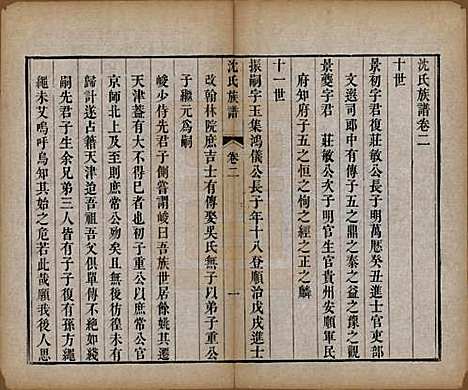 沈氏族譜卷二
十世
景初字君復莊敏公長子明萬曆癸丑進士官吏部
文選司郎中有傳子五之鼎之秦之益之豫之觀
景夔字君 莊敏公次子明官生官貴州安順軍民
府知府子五之恒之恂之經之正之麟
十一世
振嗣字玉集鴻儀公長子年十八登順治戊戌進士
沈氏族譜 卷二 一
改翰林院庶吉士有傳娶吳氏無子以弟子重公
子繼元為嗣
峻少侍先君子側嘗謂峻曰吾族世居餘姚其於
天津蓋有大不得已者在當庶常公與子重公官
京師北上不數年庶常公歿矣且無子彷徨未有
歸計遂占籍天津迨吾祖吾父俱單傳不絕如綫
嗣先君子生余兄弟三人皆有子似可復有孫方繩
繩未艾嗚呼烏知其之危若此哉願我後人思